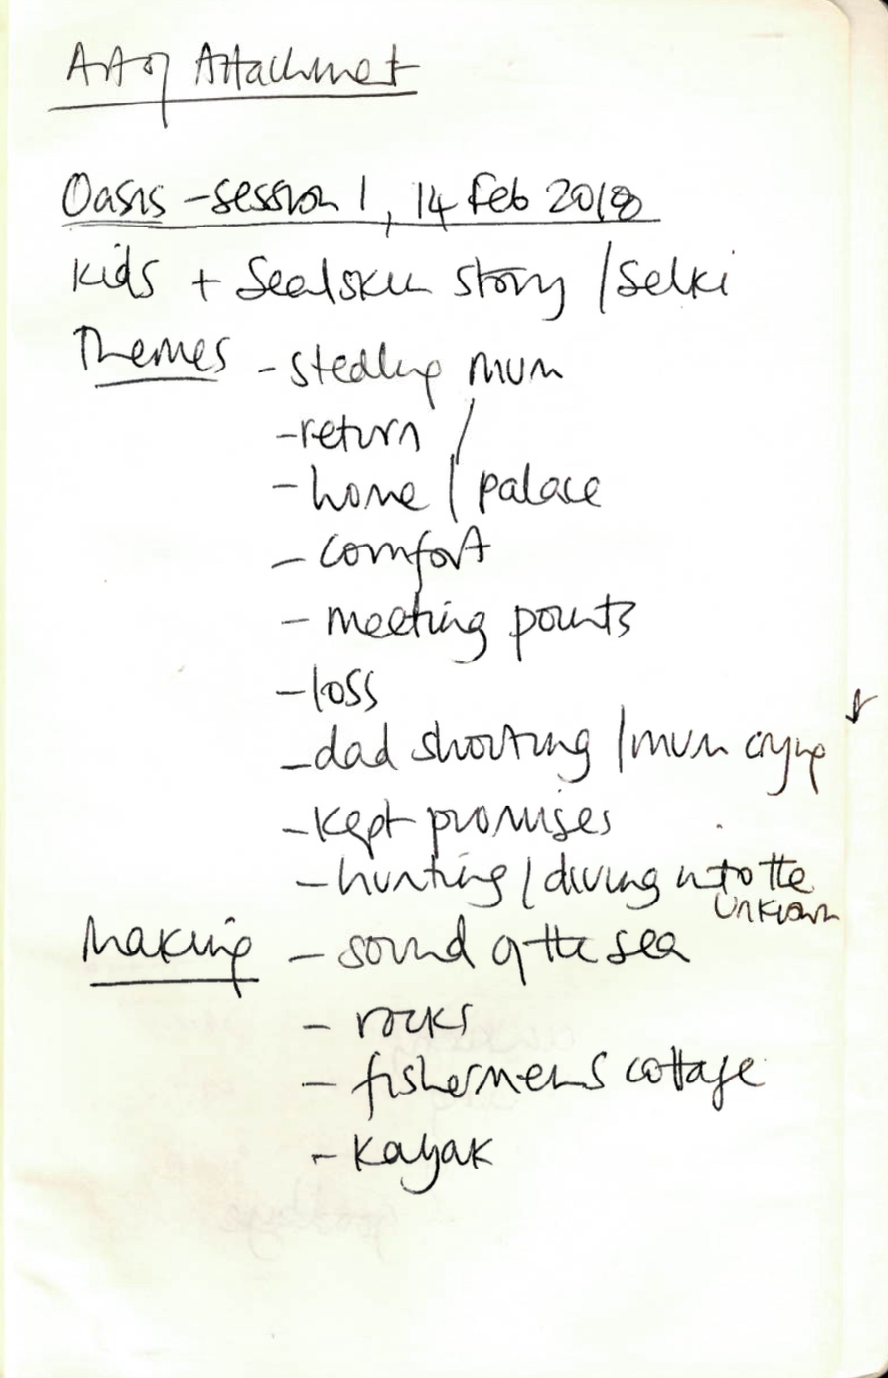 Art of Attachment
Oasis - session 1, 14 Feb 2018
Kids + Sealskin story / Selki
Themes - stealing mum
- return /
- home / palace
- comfort
- meeting points
- loss
- dad shouting / mum crying
- kept promises
- hunting / diving into the
unknown
Making - sound of the sea
- rocks
- fishermens cottage
- kayak